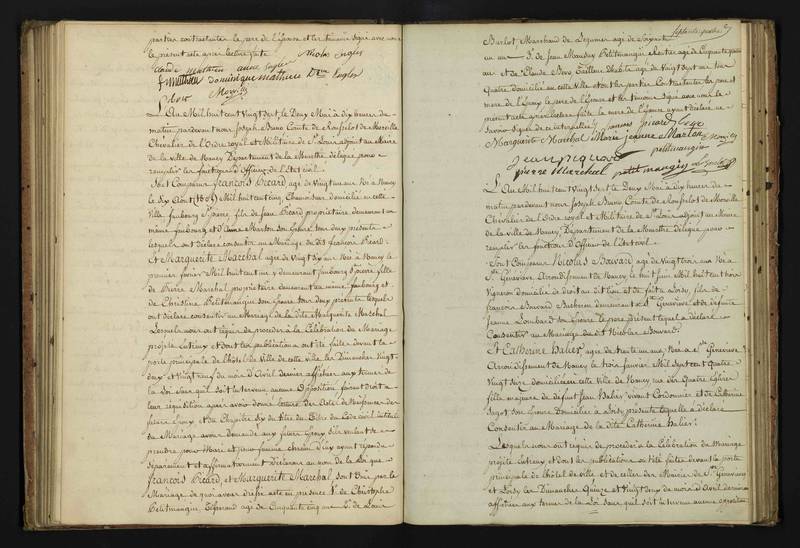 parties contractantes le père de l'Epouse et les témoins signé avec nous
le présent acte après lecture faite
F. Mathieu dominique mathieu
L'An Mil huit cent Vingt sept, le Deux Mai à dix heures du
matin pardevant nous Joseph Bruno Comte de
Chevalier de l'Ordre royal et Militaire de St. Louis adjoint au Maire
de la ville de Nancy Département de la Meurthe délégué pour
remplir les fonctions d'Officier de l'Etat civil.
Sont Comparus François Picard agé de vingt un ans Né à Nancy
le Six Aout (1805) Mil huit cent cinq domicilié en cette
Ville faubourg St. pierre, fils de Jean Picard propriétaire demeurant au
même faubourg et d'Anne Marton son Epouse tous deux présents
lesquels ont déclaré consentir au Mariage du dit François Picard.
Et Marguerite Maréchal agée de Vingt six ans Née à Nancy le
premier fevrier Mil huit cent un demeurant faubourg St. pierre fille
de Pierre Maréchal propriétaire demeurant au même faubourg et
de Christine Petitmangin son Epouse tous deux présents lesquels
ont déclaré consentir au Mariage de la dite Marguerite Maréchal
Lesquels nous ont requis de procéder à la Célébration du Mariage
projetté entr'eux et dont les publications ont été faites devant la
porte principale de l'hôtel de Ville de cette ville les Dimanches Vingt
deux et Vingt neuf du mois d'Avril dernier affichées aux termes de
la Loi sans qu'il soit survenu aucune Opposition faisant droit à
leur réquisition après avoir donné lecture des Actes de Naissances des
futurs Epoux et du Chapitre Six du titre du Code civil intitulé
du Mariage avons demandé aux futurs Epoux s'ils veulent se
prendre pour Mari et pour femme chacun d'eux ayant répondu
séparément et affirmativement Déclarons au nom de la Loi que
François Picard, et Marguerite Maréchal sont Unis par le
Mariage de quoi avons dressé acte en présence de Christophe
Petitmangin agé de Cinquante cinq ans
Marchand de Légumes agé de
un an de Jean Petitmangin Rentier agé de Cinquante
ans et de Claude Tailleur d'habits agé de Vingt sept ans tous
Quatre domiciliés en cette Ville et ont les parties Contractantes les père et
mère de l'Epoux le père de l'Epouse et les témoins signé avec nous le
présent acte après lecture faite la mère de l'Epouse ayant déclaré ne
savoir signer de ce interpellée françois picard
Marguerite Maréchal Marie jeanne Marton
petitmangin
jean picard
pierre Marechal petitmangin
L'An Mil huit cent Vingt sept le Deux Mai à dix heures du
matin pardevant nous Joseph Bruno Comte de
Chevalier de l'Ordre royal et Militaire de St. Louis adjoint au Maire
de la Ville de Nancy, Département de la Meurthe délégué pour
remplir les fonctions d'Officier de l'Etat civil.
Sont Comparus Nicolas agé de Vingt trois ans Né à
Ste. Geneviève Arrondissement de Nancy le huit Juin Mil huit cent trois
Vigneron domicilié de droit au dit lieu et de fait à Loisy, fils de
françois demeurant à Ste. Geneviève et de défunte
Jeanne son Epouse le père présent lequel a déclaré
Consentir au Mariage du dit Nicolas
Et Catherine Halier agée de trente un ans, Née à Ste. Geneviève
Arrondissement de Nancy le trois Janvier Mil sept cent Quatre
Vingt seize domiciliée en cette Ville de Nancy rue des Quatre Eglises
fille majeure de défunt Jean Halier vivant Cordonnier et de Catherine
son Epouse Domiciliée à Loisy présente laquelle a déclaré
Consentir au Mariage de la dite Catherine Halier.
Lesquels nous ont requis de procéder à la Célébration du Mariage
projetté entr'eux et dont les publications ont été faites devant la porte
principale de l'hôtel de ville et de celles des Mairies de Ste. Geneviève
et Loisy les Dimanches Quinze et Vingt deux du mois d'Avril dernier
affichées aux termes de la Loi sans qu'il soit survenu aucune opposition